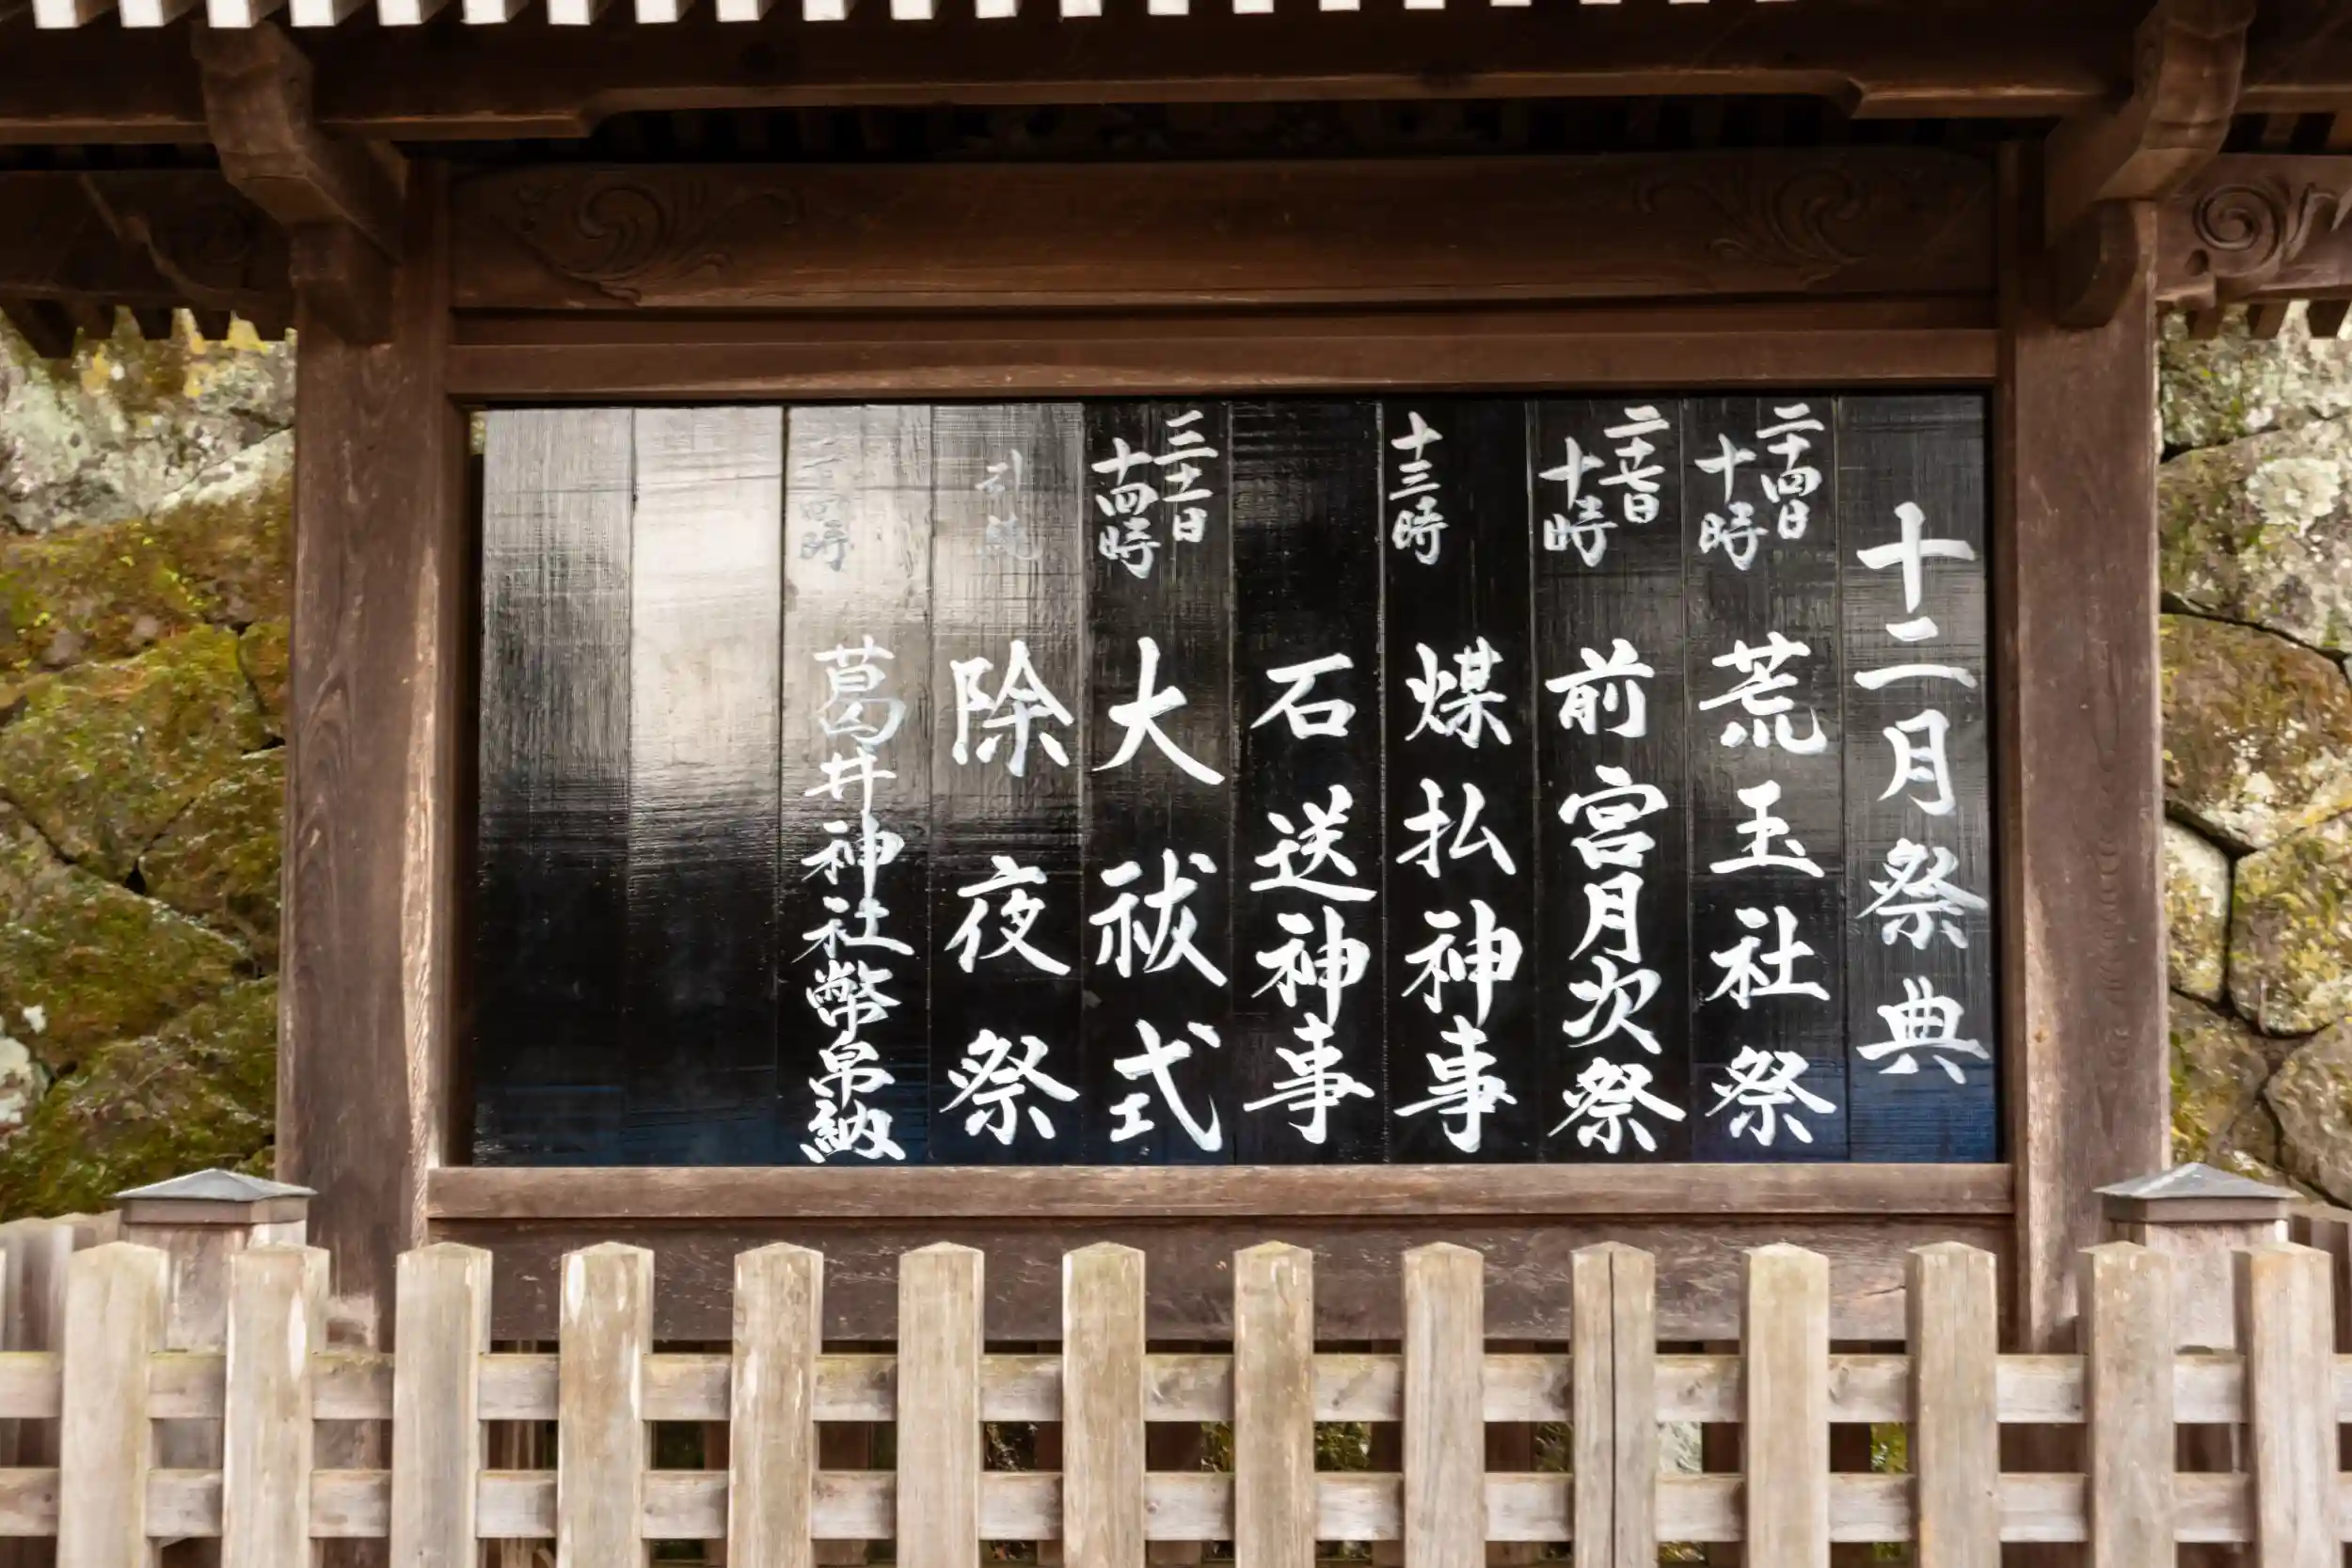 十二月祭典
二十四日
十時
荒玉社祭
二十七日
十時
前宮月次祭
十三時
煤払神事
石送神事
三十一日
十四時
大祓式
引続
除夜祭
時
葛井神社幣帛納